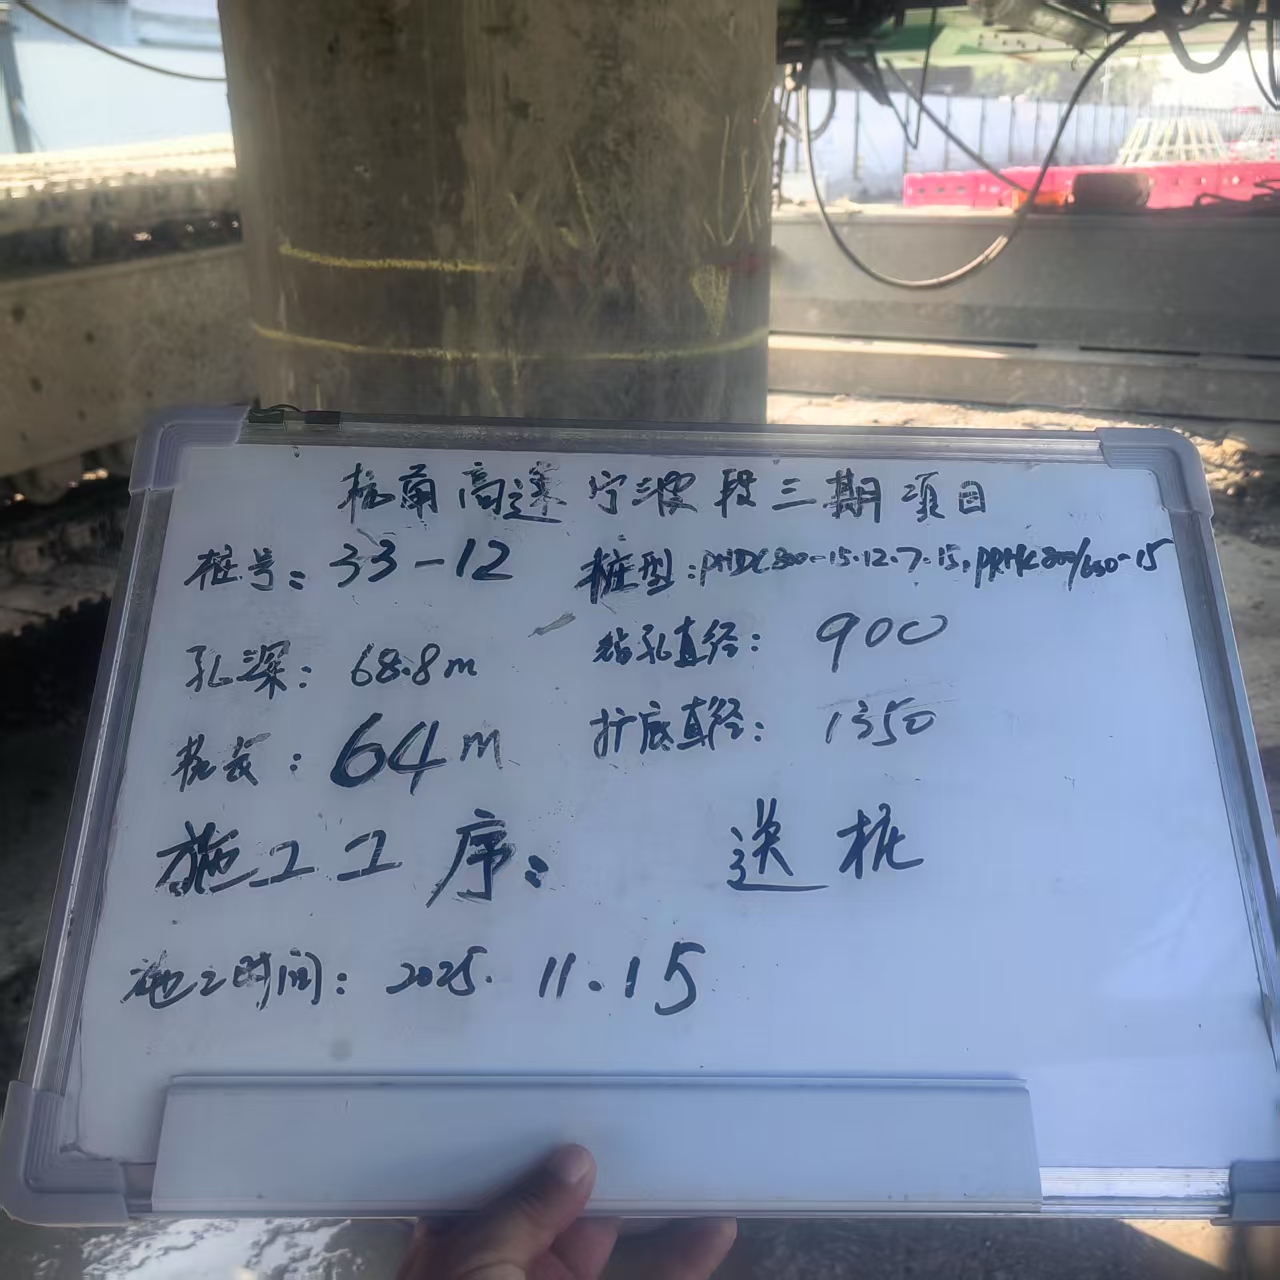 杭甬高速宁波段三期项目
桩号：33-12 桩型：PHDC800-15.12.7.15，PRHC800/650-15
孔深：68.8m 钻孔直径：900
桩长：64m 扩底直径：1350
施工工序：送桩
施工时间：2025.11.15